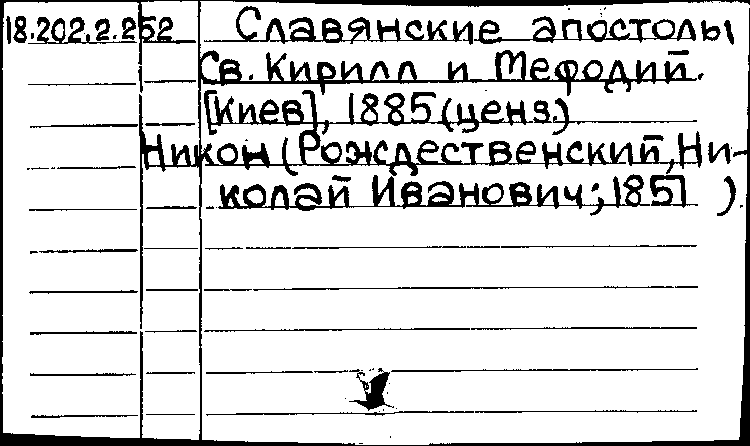 18.202.2.252 Славянские апостолы
Св. Кирилл и Мефодий.
[Киев], 1885 (ценз.)
Никон (Рождественский, Ни-
колай Иванович; 1851 )